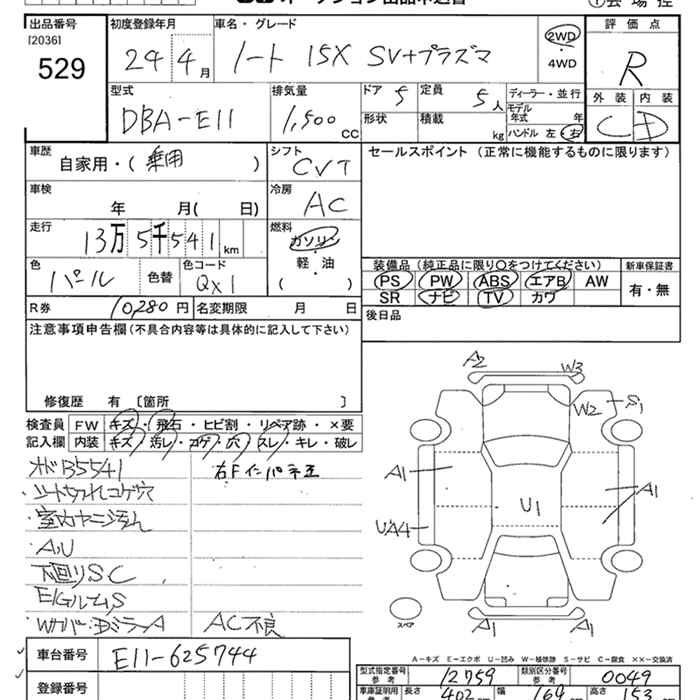 出品番号 初度登録年月 車名・グレード 評価点
[2036]
529
24年4月 ノート 15X SV+プラズマ 2WD
・
4WD
R
外装 内装
C D
型式 排気量 ドア 定員 ディーラー・並行
DBA-E11 1,500cc 5 5人
モデル年式 年
形状 積載 kg ハンドル 左・右
車歴 シフト セールスポイント (正常に機能するものに限ります)
自家用・(乗用) CVT
車検 冷房
年 月(日) AC
走行 燃料
13万5千541km ガソリン
軽・油
( )
色 色替 色コード
パール QX1
装備品 (純正品に限り○をつけてください) 新車保証書
PS PW ABS エアB AW 有・無
SR ナビ TV カワ
R券 10,280円 名変期限 月 日 後日品
注意事項申告欄 (不具合内容等は具体的に記入して下さい)
修復歴 有 〔箇所 〕
検査員 FW キズ・飛石・ヒビ割・リペア跡・×要
記入欄 内装 キズ・汚レ・コゲ・穴・スレ・キレ・破レ
B5541 右Fインパネ歪
・シート切れコゲ穴
・室内ヤニ汚れ
・AU
下回りSC
AC不良
A2 W3
W2 S1
A1 A1
U1
UA4
A1 A1
スペア
A-キズ E-エクボ U-凹み W-補修跡 S-サビ C-腐食 ××-交換済
車台番号 E11-625744
型式指定番号 参考 12759 類別区分番号 参考 0049
登録番号
車庫証明用 長さ 402 幅 169 高さ 153